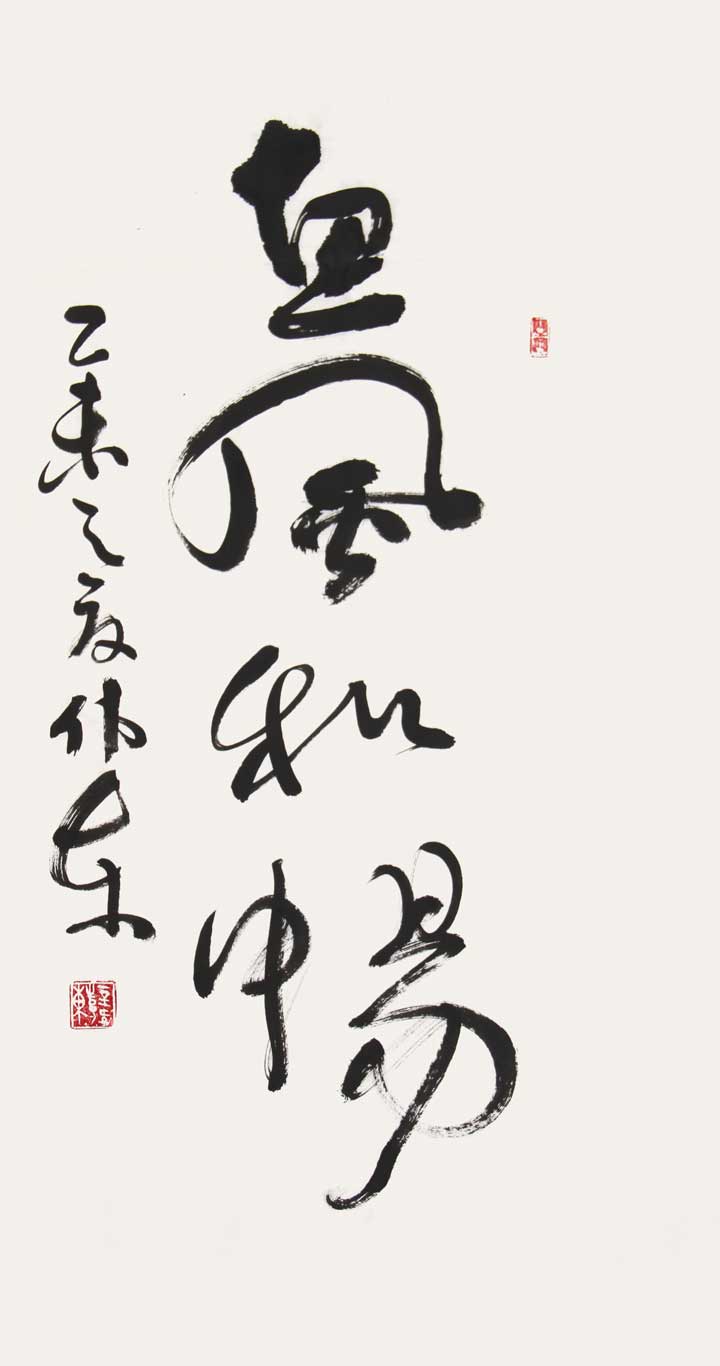 惠風和暢
乙未之夏偉東